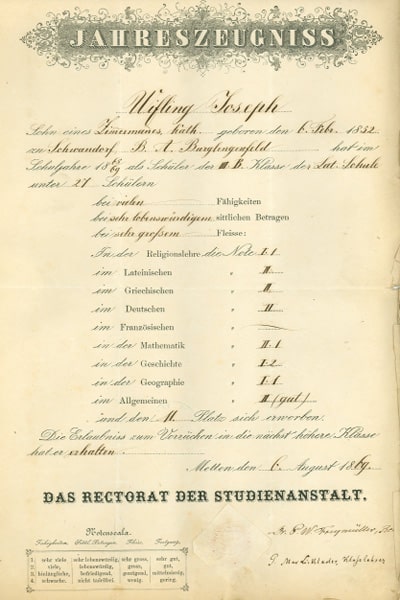 JAHRESZEUGNISS
Wifling Joseph
Sohn eines Zimermanns, kath. geboren den 6. Febr. 1852
zu Schwandorf B. A. Burglengenfeld hat im
Schuljahre 18 68/69 als Schüler der III. B. Klasse der Lat. Schule
unter 27 Schülern
bei vielen Fähigkeiten
bei sehr lobenswürdigem sittlichen Betragen
bei sehr großem Fleisse:
In der Religionslehre die Note I-1
im Lateinischen " II
im Griechischen " II
im Deutschen " II
im Französischen "
in der Mathematik " II-1
in der Geschichte " I-2
in der Geographie " I-1
im Allgemeinen " II (gut)
und den 11. Platz sich erworben.
Die Erlaubniss zum Vorrücken in die nächst höhere Klasse
hat er erhalten.
Metten den 6. August 1869.
DAS RECTORAT DER STUDIENANSTALT.
Notenscala.
Fähigkeiten. Sittl. Betragen. Fleiss. Fortgang.
1. sehr viele sehr lobenswürdig, sehr gross, sehr gut,
2. viele, lobenswürdig, gross, gut,
3. hinlängliche, befriedigend, genügend, mittelmässig,
4. schwache, nicht tadelfrei. wenig. gering.
Klasslehrer